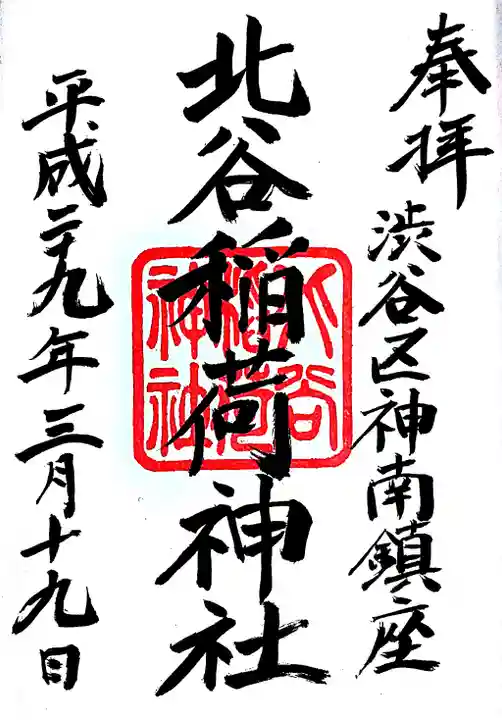 奉拝
渋谷区神南鎮座
北谷稲荷神社
北谷
稲荷
神社
平成二十九年三月十九日